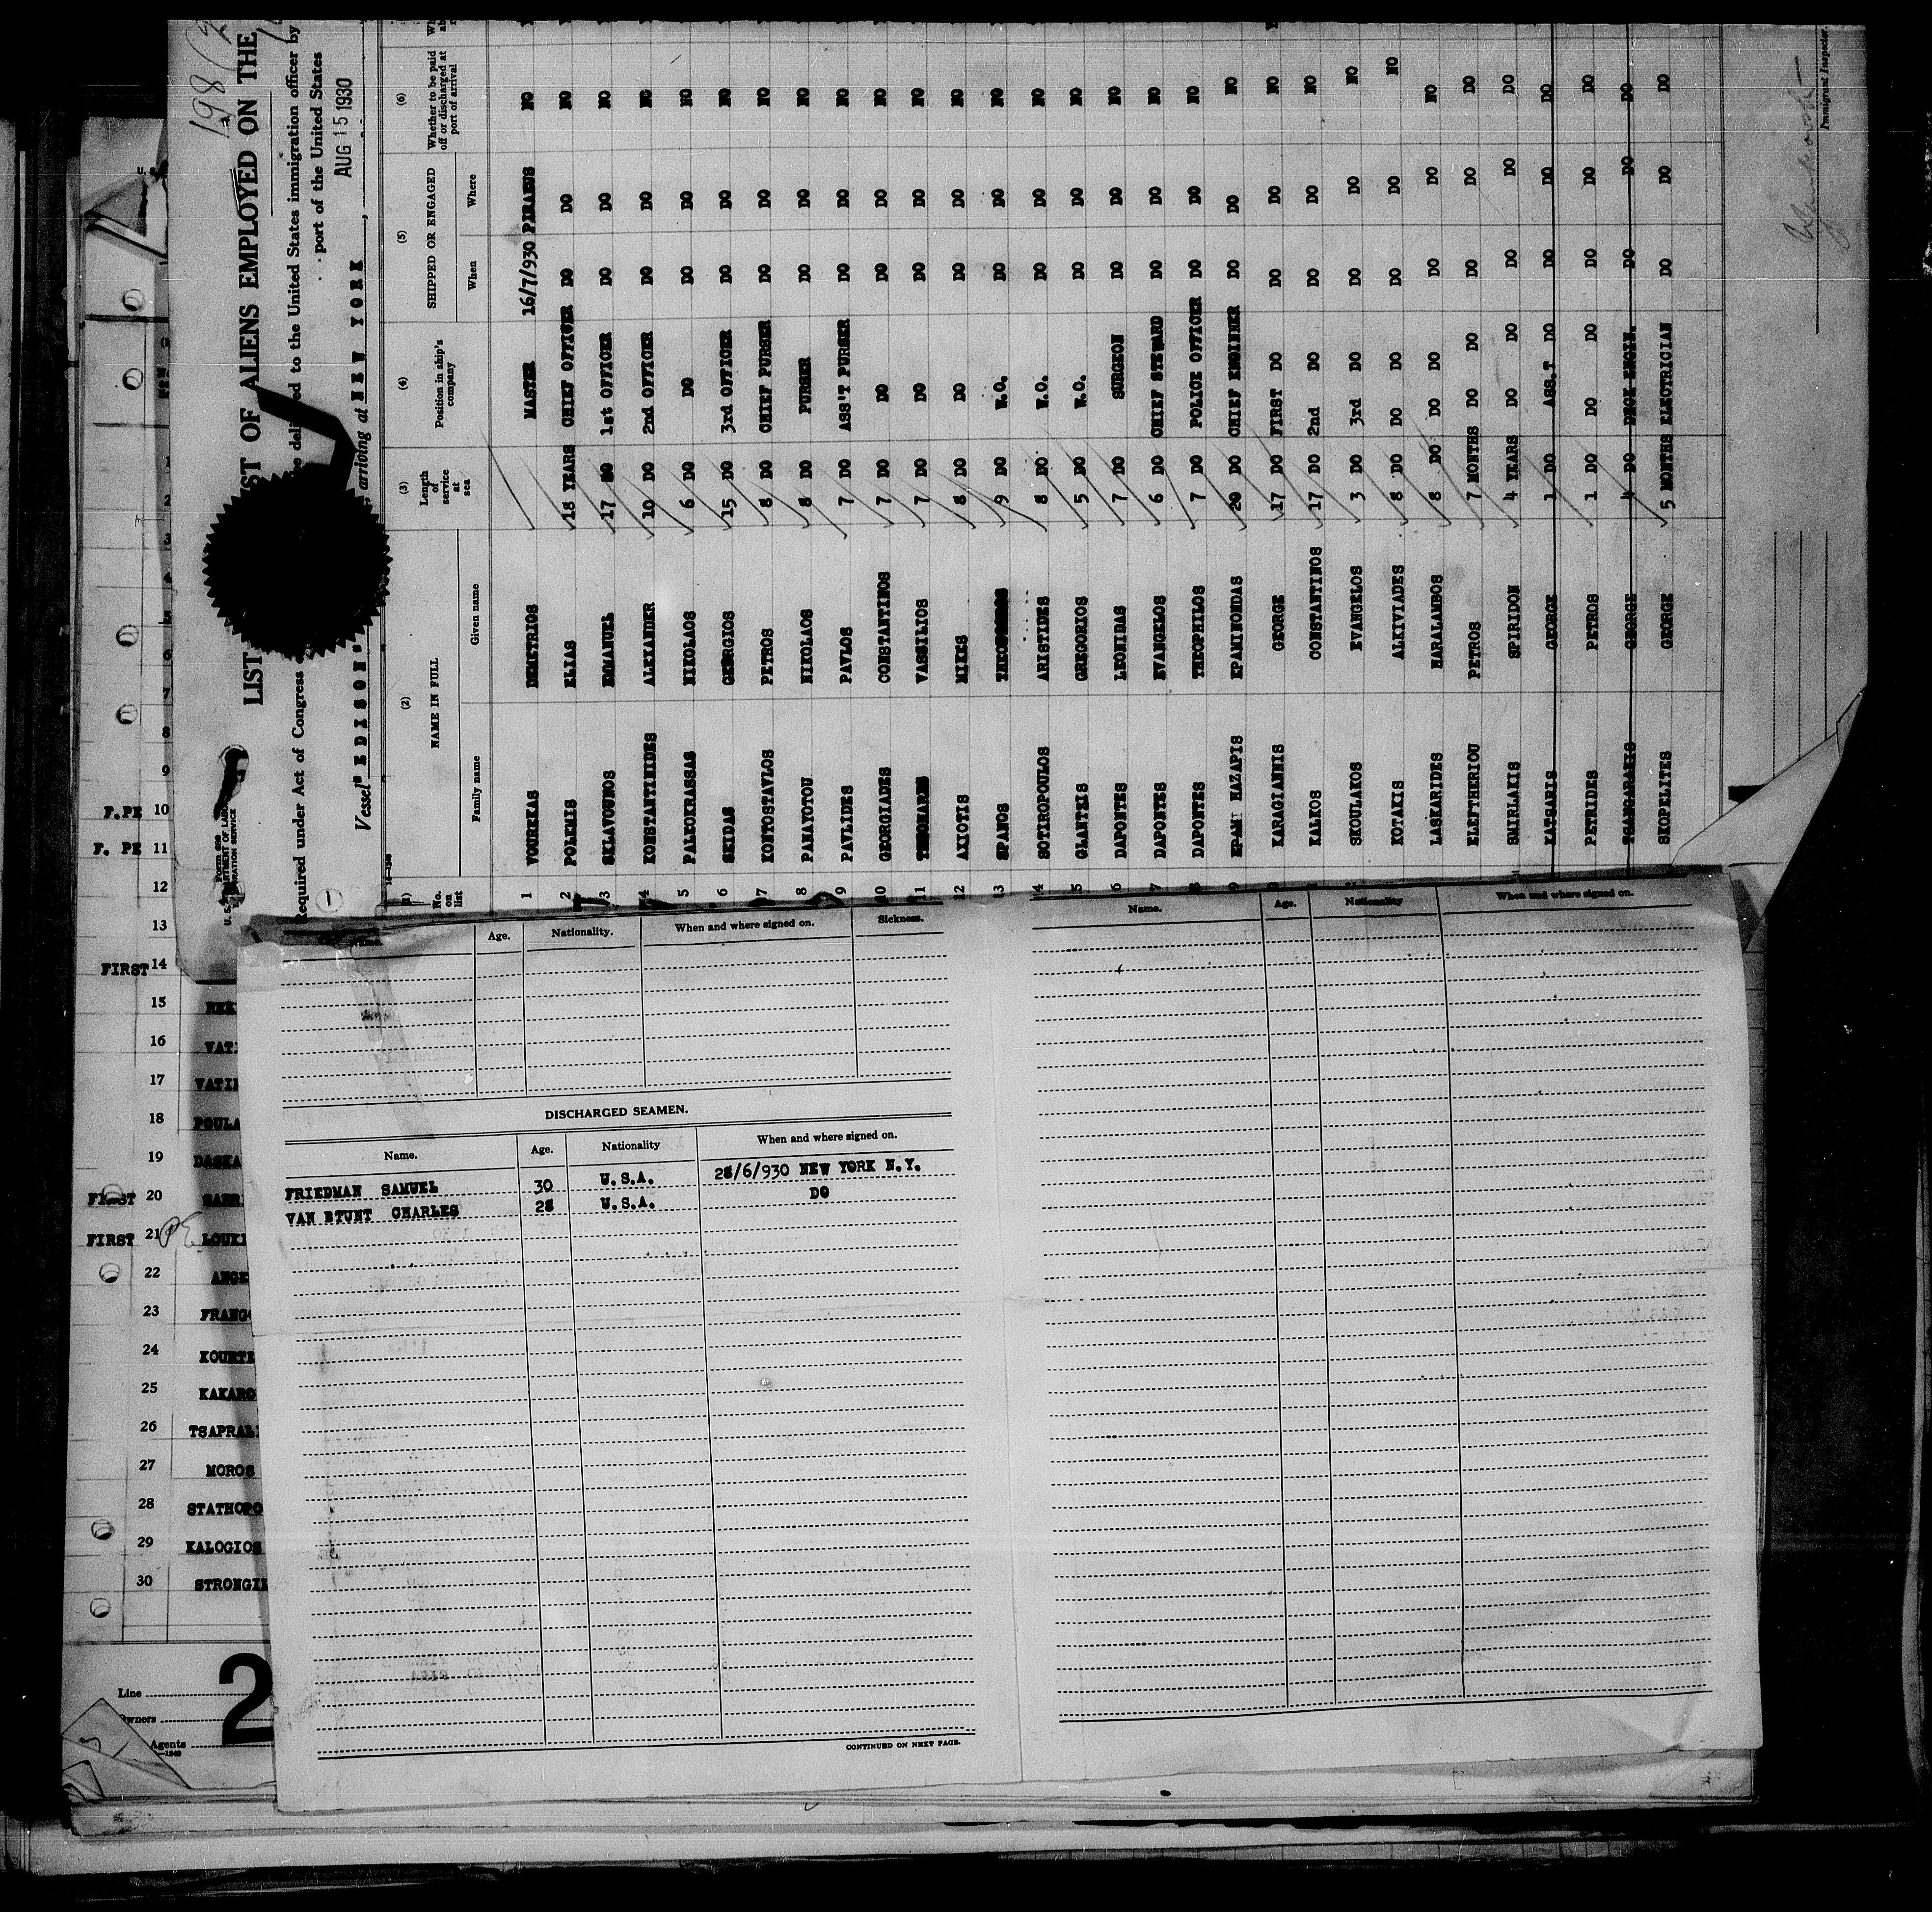 198 (2
LIST OF ALIENS EMPLOYED ON THE
Required under Act of Congress
to the United States immigration officer by
port of the United States
Vessel "EDISON", arriving at NEW YORK, AUG 15 1930
Form 689
U. S. DEPARTMENT OF LABOR
IMMIGRATION SERVICE
(1) (2) (3) (4) (5) (6)
No. on list NAME IN FULL Length of service at sea Position in ship's company SHIPPED OR ENGAGED Whether to be paid off or discharged at port of arrival
Family name Given name When Where
1 VOUREKAS DEMETRIOS MASTER 16/7/930 PIRAEUS NO
2 POLEMIS ELIAS 18 YEARS CHIEF OFFICER DO DO NO
3 SKLAVOUNOS EMMANUEL 17 DO 1st OFFICER DO DO NO
4 KONSTANTINIDES ALEXANDER 10 DO 2nd OFFICER DO DO NO
5 PALEOKRASSAS NIKOLAOS 6 DO DO DO DO NO
6 SKIDAS GEORGIOS 15 DO 3rd OFFICER DO DO NO
7 KONTOSTAVLOS PETROS 8 DO CHIEF PURSER DO DO NO
8 PANAYOTOU NIKOLAOS 8 DO PURSER DO DO NO
9 PAVLIDES PAVLOS 7 DO ASS'T PURSER DO DO NO
10 GEORGIADES CONSTANTINOS 7 DO DO DO DO NO
11 VASSILIOS 7 DO DO DO DO NO
12 AXIOTIS MIKES 8 DO DO DO DO NO
13 SPANOS 9 DO W.O. DO DO NO
14 SOTIROPOULOS ARISTIDES 8 DO W.O. DO DO NO
5 GLANTZIS GREGORIOS 5 DO W.O. DO DO NO
6 DAPONTES LEONIDAS 7 DO SURGEON DO DO NO
7 DAPONTES EVANGELOS 6 DO CHIEF STEWARD DO DO NO
8 DAPONTES THEOPHILOS 7 DO POLICE OFFICER DO DO NO
9 HAZAPIS EPAMINONDAS 20 DO CHIEF ENGINEER DO DO NO
KARAGIANNIS GEORGE 17 DO FIRST DO DO DO NO
KALKOS CONSTANTINOS 17 DO 2nd DO DO DO NO
SKOULAKOS EVANGELOS 3 DO 3rd DO DO DO NO
KOTAKIS ALKIVIADES 8 DO DO DO DO DO NO
LASKARIDES HARALAMBOS 8 DO DO DO DO DO NO
ELEFTHERIOU PETROS 7 MONTHS DO DO DO DO DO
SMIRLAKIS SPIRIDON 4 YEARS DO DO DO DO DO
KATSARIS GEORGE 1 DO ASS.T DO DO DO DO
PETRIDES PETROS 1 DO DO DO DO DO DO
TSANGARAKIS GEORGE 4 DO DECK ENGIN. DO DO DO
SKOPELITES GEORGE 5 MONTHS ELECTRICIAN DO DO DO
Immigrant Inspector.
1
2
3
4
5
6
7
8
9
F.PE 10
F. PE 11
12
13
FIRST 14
15
16
17
18 POULA
19 DASKA
FIRST 20
FIRST 21 LOUKI
22 ANGE
23 FRANGO
24 KOURTE
25 KAKARO
26 TSAPRAL
27 MOROS
28 STATHOPO
29 KALOGIOS
30 STRONGIL
Line
Owners
Agents
2
Name. Age. Nationality. When and where signed on. Sickness.
DISCHARGED SEAMEN.
Name. Age. Nationality When and where signed on.
FRIEDMAN SAMUEL 30 U.S.A. 28/6/930 NEW YORK N.Y.
VAN ETUNT CHARLES 28 U.S.A. DO
CONTINUED ON NEXT PAGE.
Name. Age. Nationality When and where signed on.